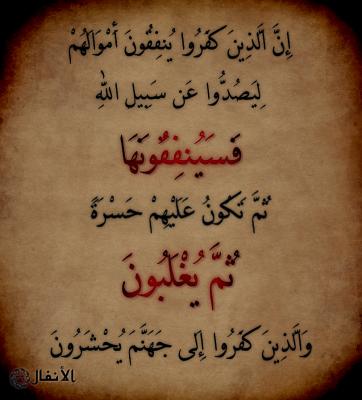 إِنَّ الَّذِينَ كَفَرُوا يُنفِقُونَ أَمْوَالَهُمْ
لِيَصُدُّوا عَن سَبِيلِ اللَّهِ
فَسَيُنفِقُونَهَا
ثُمَّ تَكُونُ عَلَيْهِمْ حَسْرَةً
ثُمَّ يُغْلَبُونَ
وَالَّذِينَ كَفَرُوا إِلَى جَهَنَّمَ يُحْشَرُونَ
الأنفال